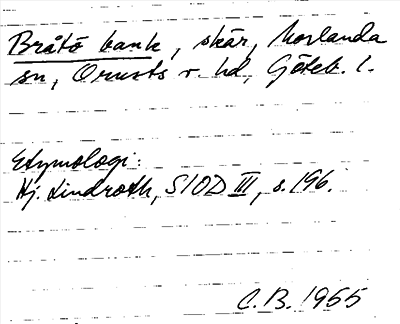 Bråtö bank, skär, Morlanda
sn, Orusts v. hd, Göteb. l.
Etymologi:
Hj. Lindroth, SIOD III, s. 196.
C.B. 1965